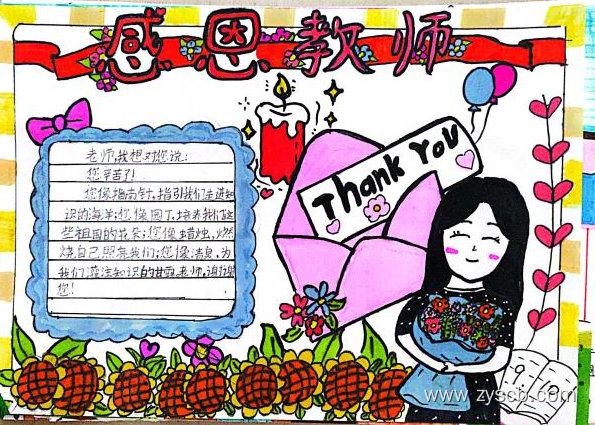 感恩教师
Thank You
老师,我想对您说:
您辛苦了!
您像指南针,指引我们走进知
识的海洋;您像园丁,培养我们这
些祖国的花朵;您像蜡烛,燃
烧自己照亮我们;您像清泉,为
我们灌注知识的甘露,老师,谢谢
您!
9 10
www.zyscb.com